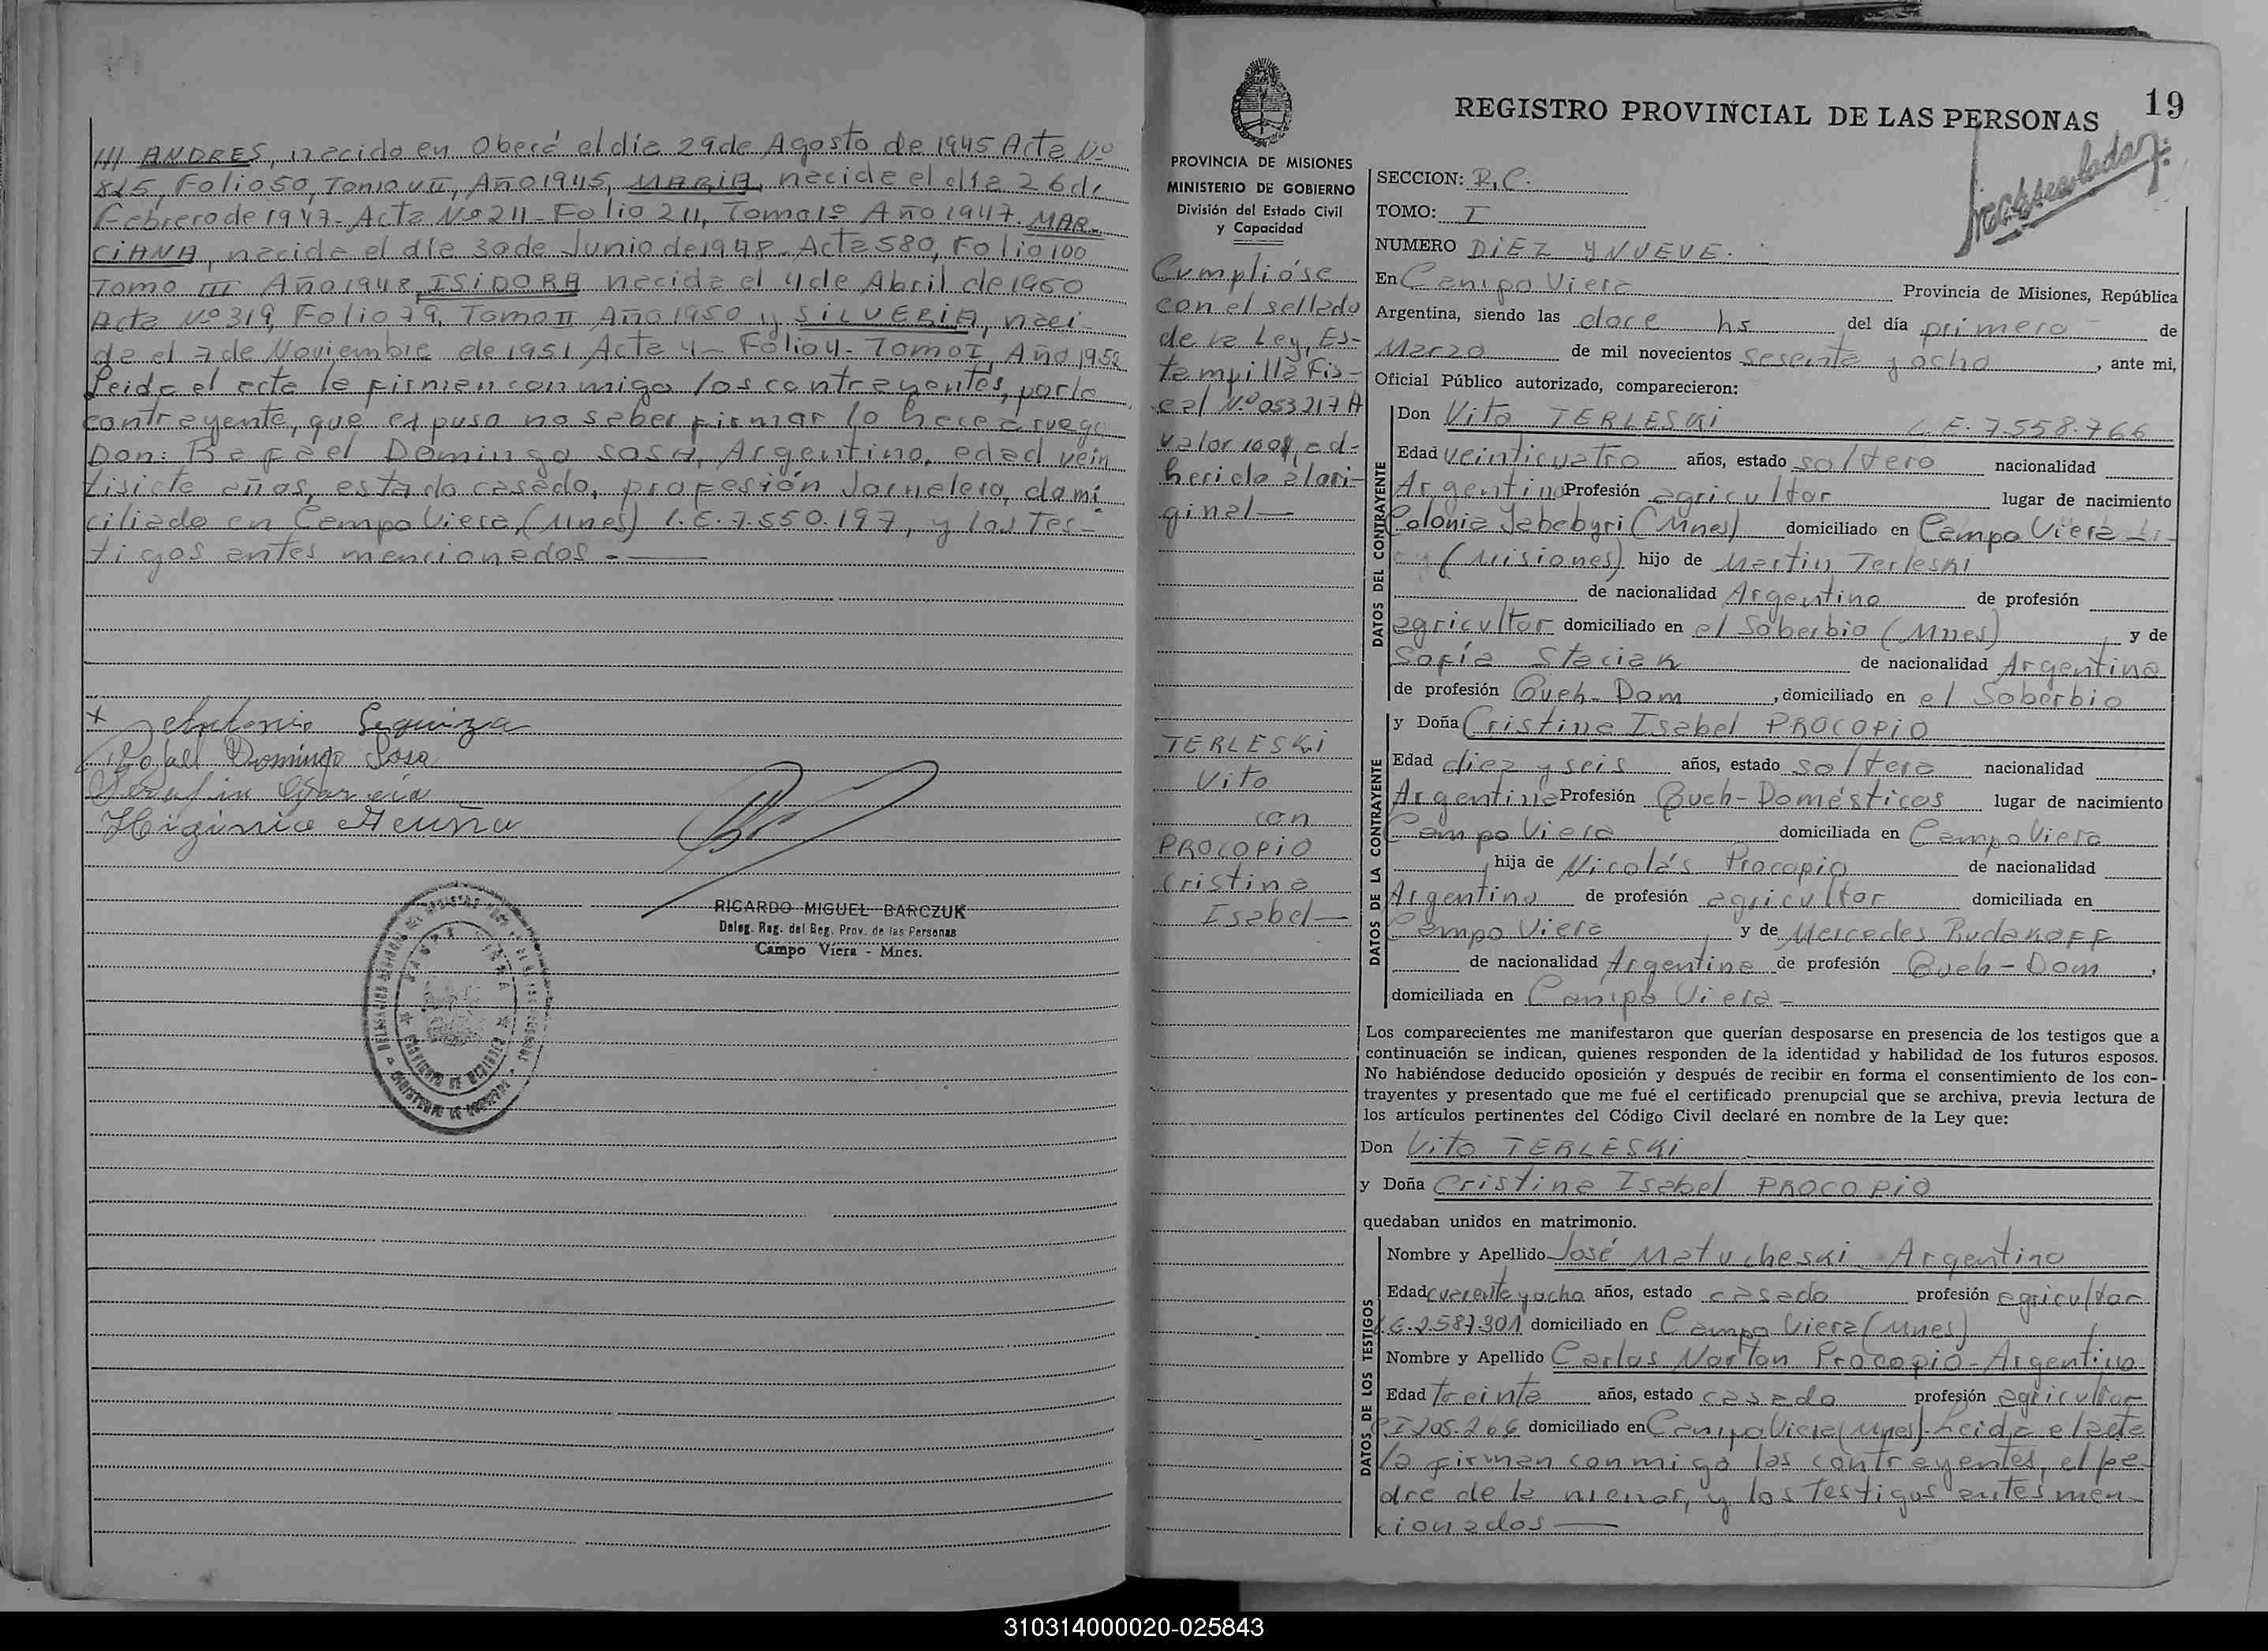 /// ANDRES, nacido en Oberá el día 29 de Agosto de 1945 Acta Nº
815, Folio 50, Tomo VII, Año 1945, MARIA, nacida el día 26 de
Febrero de 1947- Acta Nº 211- Folio 211, Tomo 1º Año 1947. MAR-
CIANA, nacida el día 30 de Junio de 1948- Acta 580, Folio 100
Tomo III Año 1948, ISIDORA nacida el 4 de Abril de 1950
Acta Nº 319, Folio 79, Tomo II Año 1950 y SILVERIA, naci-
da el 7 de Noviembre de 1951 Acta 4- Folio 4- Tomo I, Año 1952
Leida el acta la firman conmigo los contrayentes, por la
contrayente, que expuso no saber firmar lo hace a ruego
Don: Rafael Domingo SOSA, Argentino, edad vein
tisiete años, estado casado, profesión Jornalero, domi
ciliado en Campo Viera, (Mnes) L.E. 7.550.197, y los Tes-
tigos antes mencionados.-
x Antonio Leguiza
Rafael Domingo Sosa
Serafin Garcia
Higinio Acuña
RICARDO MIGUEL BARCZUK
Deleg. Reg. del Reg. Prov. de las Personas
Campo Viera - Mnes.
REGISTRO PROVINCIAL DE LAS PERSONAS
19
PROVINCIA DE MISIONES
MINISTERIO DE GOBIERNO
División del Estado Civil
y Capacidad
Cumplióse
con el sellado
de la Ley, Es-
tampilla Fis-
cal Nº 053217A
valor 100$, ad-
herida al ori-
ginal—
TERLESKI
Vito
con
PROCOPIO
Cristina
Isabel—
SECCION: R.C.
TOMO: I
NUMERO DIEZ Y NUEVE.
En Campo Viera Provincia de Misiones, República
Argentina, siendo las doce hs del día primero de
Marzo de mil novecientos sesenta y ocho, ante mi,
Oficial Público autorizado, comparecieron:
DATOS DEL CONTRAYENTE
Don Vito TERLESKI L.E. 7.558.766
Edad veinticuatro años, estado soltero nacionalidad
Argentino Profesión agricultor lugar de nacimiento
Colonia Yabebyri (Mnes) domiciliado en Campo Viera
(Misiones) hijo de Martin Terleski
de nacionalidad Argentino de profesión
agricultor domiciliado en el Soberbio (Mnes) y de
Sofía Staciak de nacionalidad Argentina
de profesión Queh-Dom, domiciliado en el Soberbio
DATOS DE LA CONTRAYENTE
y Doña Cristina Isabel PROCOPIO
Edad diez y seis años, estado soltera nacionalidad
Argentina Profesión Queh-Domésticos lugar de nacimiento
Campo Viera domiciliada en Campo Viera
hija de Nicolás Procopio de nacionalidad
Argentino de profesión agricultor domiciliada en
Campo Viera y de Mercedes Rudakoff
de nacionalidad Argentina de profesión Queh-Dom,
domiciliada en Campo Viera-
Los comparecientes me manifestaron que querían desposarse en presencia de los testigos que a
continuación se indican, quienes responden de la identidad y habilidad de los futuros esposos.
No habiéndose deducido oposición y después de recibir en forma el consentimiento de los con-
trayentes y presentado que me fué el certificado prenupcial que se archiva, previa lectura de
los artículos pertinentes del Código Civil declaré en nombre de la Ley que:
Don Vito TERLESKI
y Doña Cristina Isabel PROCOPIO
quedaban unidos en matrimonio.
DATOS DE LOS TESTIGOS
Nombre y Apellido José Matucheski Argentino
Edad cuarenta y ocho años, estado casado profesión agricultor
L.E. 2.587.301 domiciliado en Campo Viera (Mnes)
Nombre y Apellido Carlos Norton Procopio-Argentino
Edad treinta años, estado casado profesión agricultor
C.I 205.266 domiciliado en Campo Viera (Mnes)- Leida el acta
la firman conmigo los contrayentes, el pa-
dre de la menor, y los Testigos antes men-
cionados—
310314000020-025843